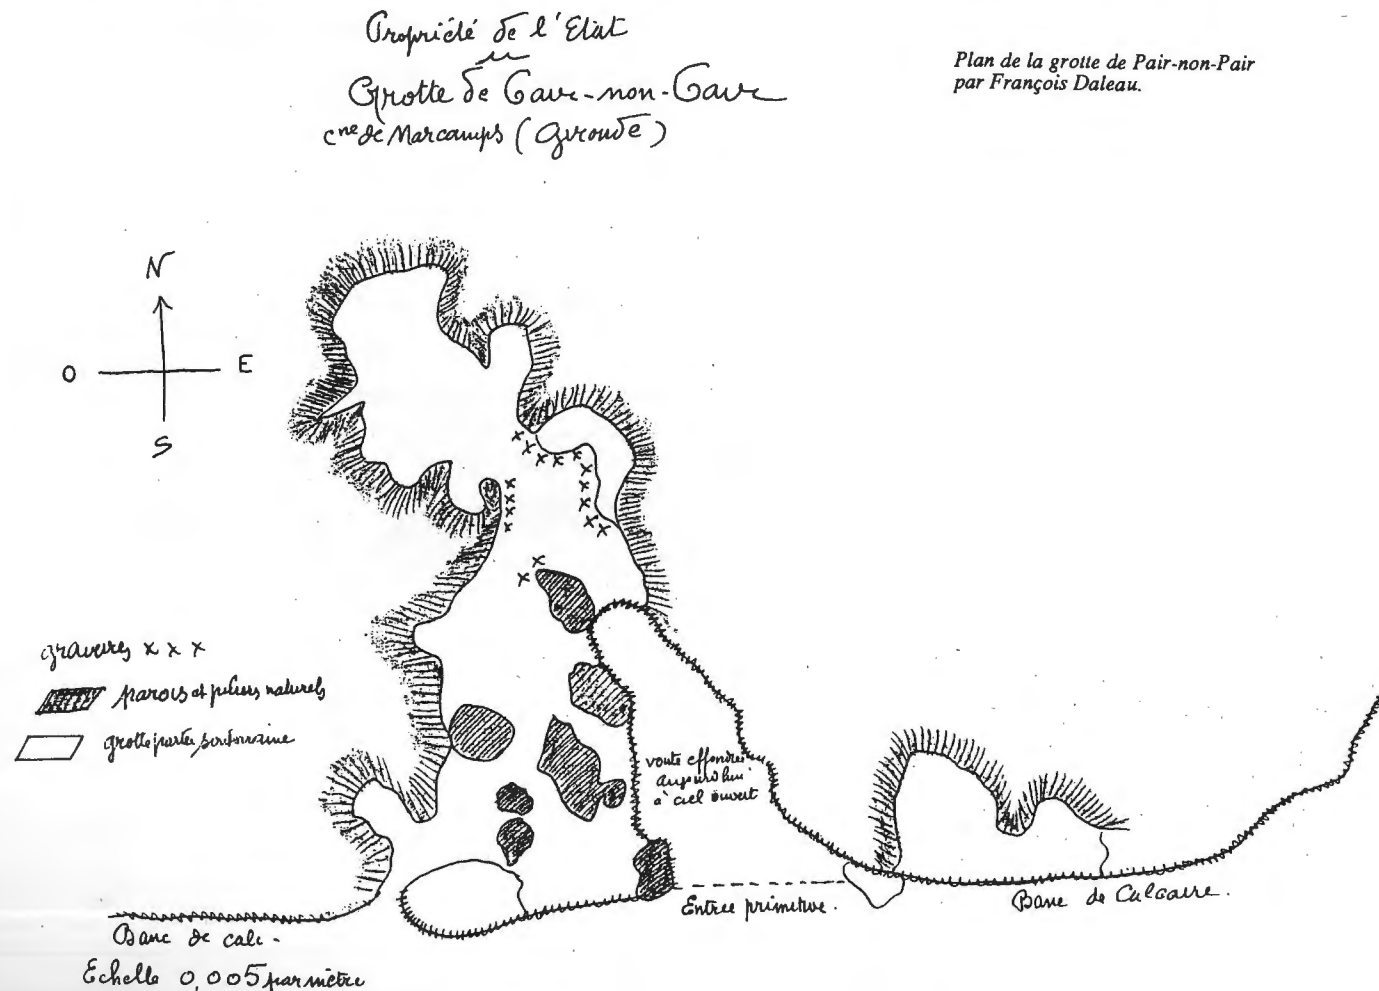 Propriété de l'Etat
Grotte de Pair-non-Pair
cne de Marcamps (Gironde)
Plan de la grotte de Pair-non-Pair
par François Daleau.
N
O
E
S
gravures x x x
parois et piliers naturels
grotte partie souterraine
voute effondrée
aujourd'hui
à ciel ouvert
Entrée primitive.
Banc de Calcaire.
Banc de calc.
Echelle 0,005 par mètre